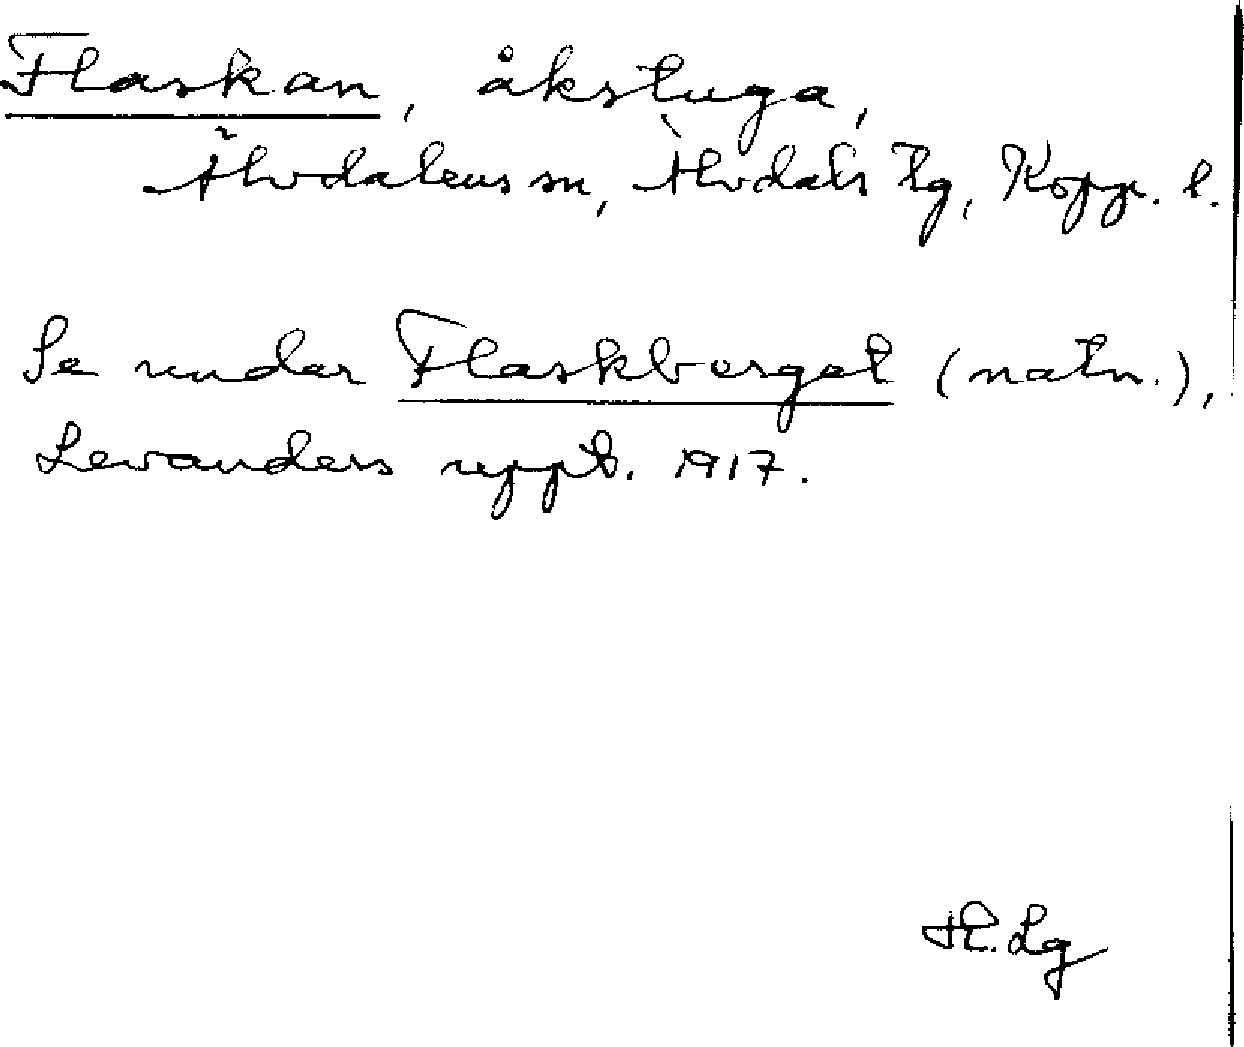 Flaskan, åkstuga,
Älvdalens sn, Älvdals tg, Kopp. l.
Se under Flaskberget (natn.),
Levanders uppt. 1917.
H. Lg